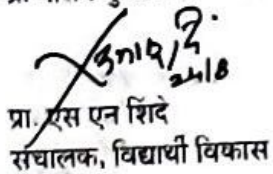 प्रा. एस एन शिंदे
संचालक, विद्यार्थी विकास